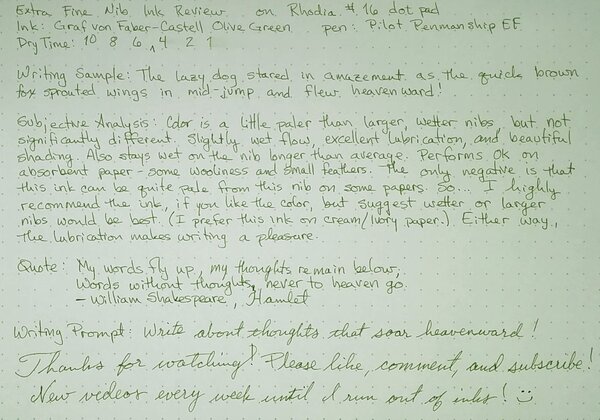 Extra Fine Nib Ink Review on Rhodia #16 dot pad
Ink: Graf von Faber-Castell Olive Green pen: Pilot Penmanship EF
Dry Time: 10 8 6 4 2 1
Writing Sample: The lazy dog stared in amazement as the quick brown
fox sprouted wings in mid-jump and flew heavenward!
Subjective Analysis: Color is a little paler than larger, wetter nibs, but not
significantly different. Slightly wet flow, excellent lubrication, and beautiful
shading. Also stays wet on the nib longer than average. Performs Ok on
absorbent paper - some wooliness and small feathers. The only negative is that
this ink can be quite pale from this nib on some papers. So... I highly
recommend the ink, if you like the color, but suggest wetter or larger
nibs would be best. (I prefer this ink on cream/Ivory paper.) Either way,
the lubrication makes writing a pleasure.
Quote: My words fly up, my thoughts remain below;
Words without thoughts, never to heaven go.
- William Shakespeare, Hamlet
Writing Prompt: Write about thoughts that soar heavenward!
Thanks for watching! Please like, comment, and subscribe!
New videos every week until I run out of inks!